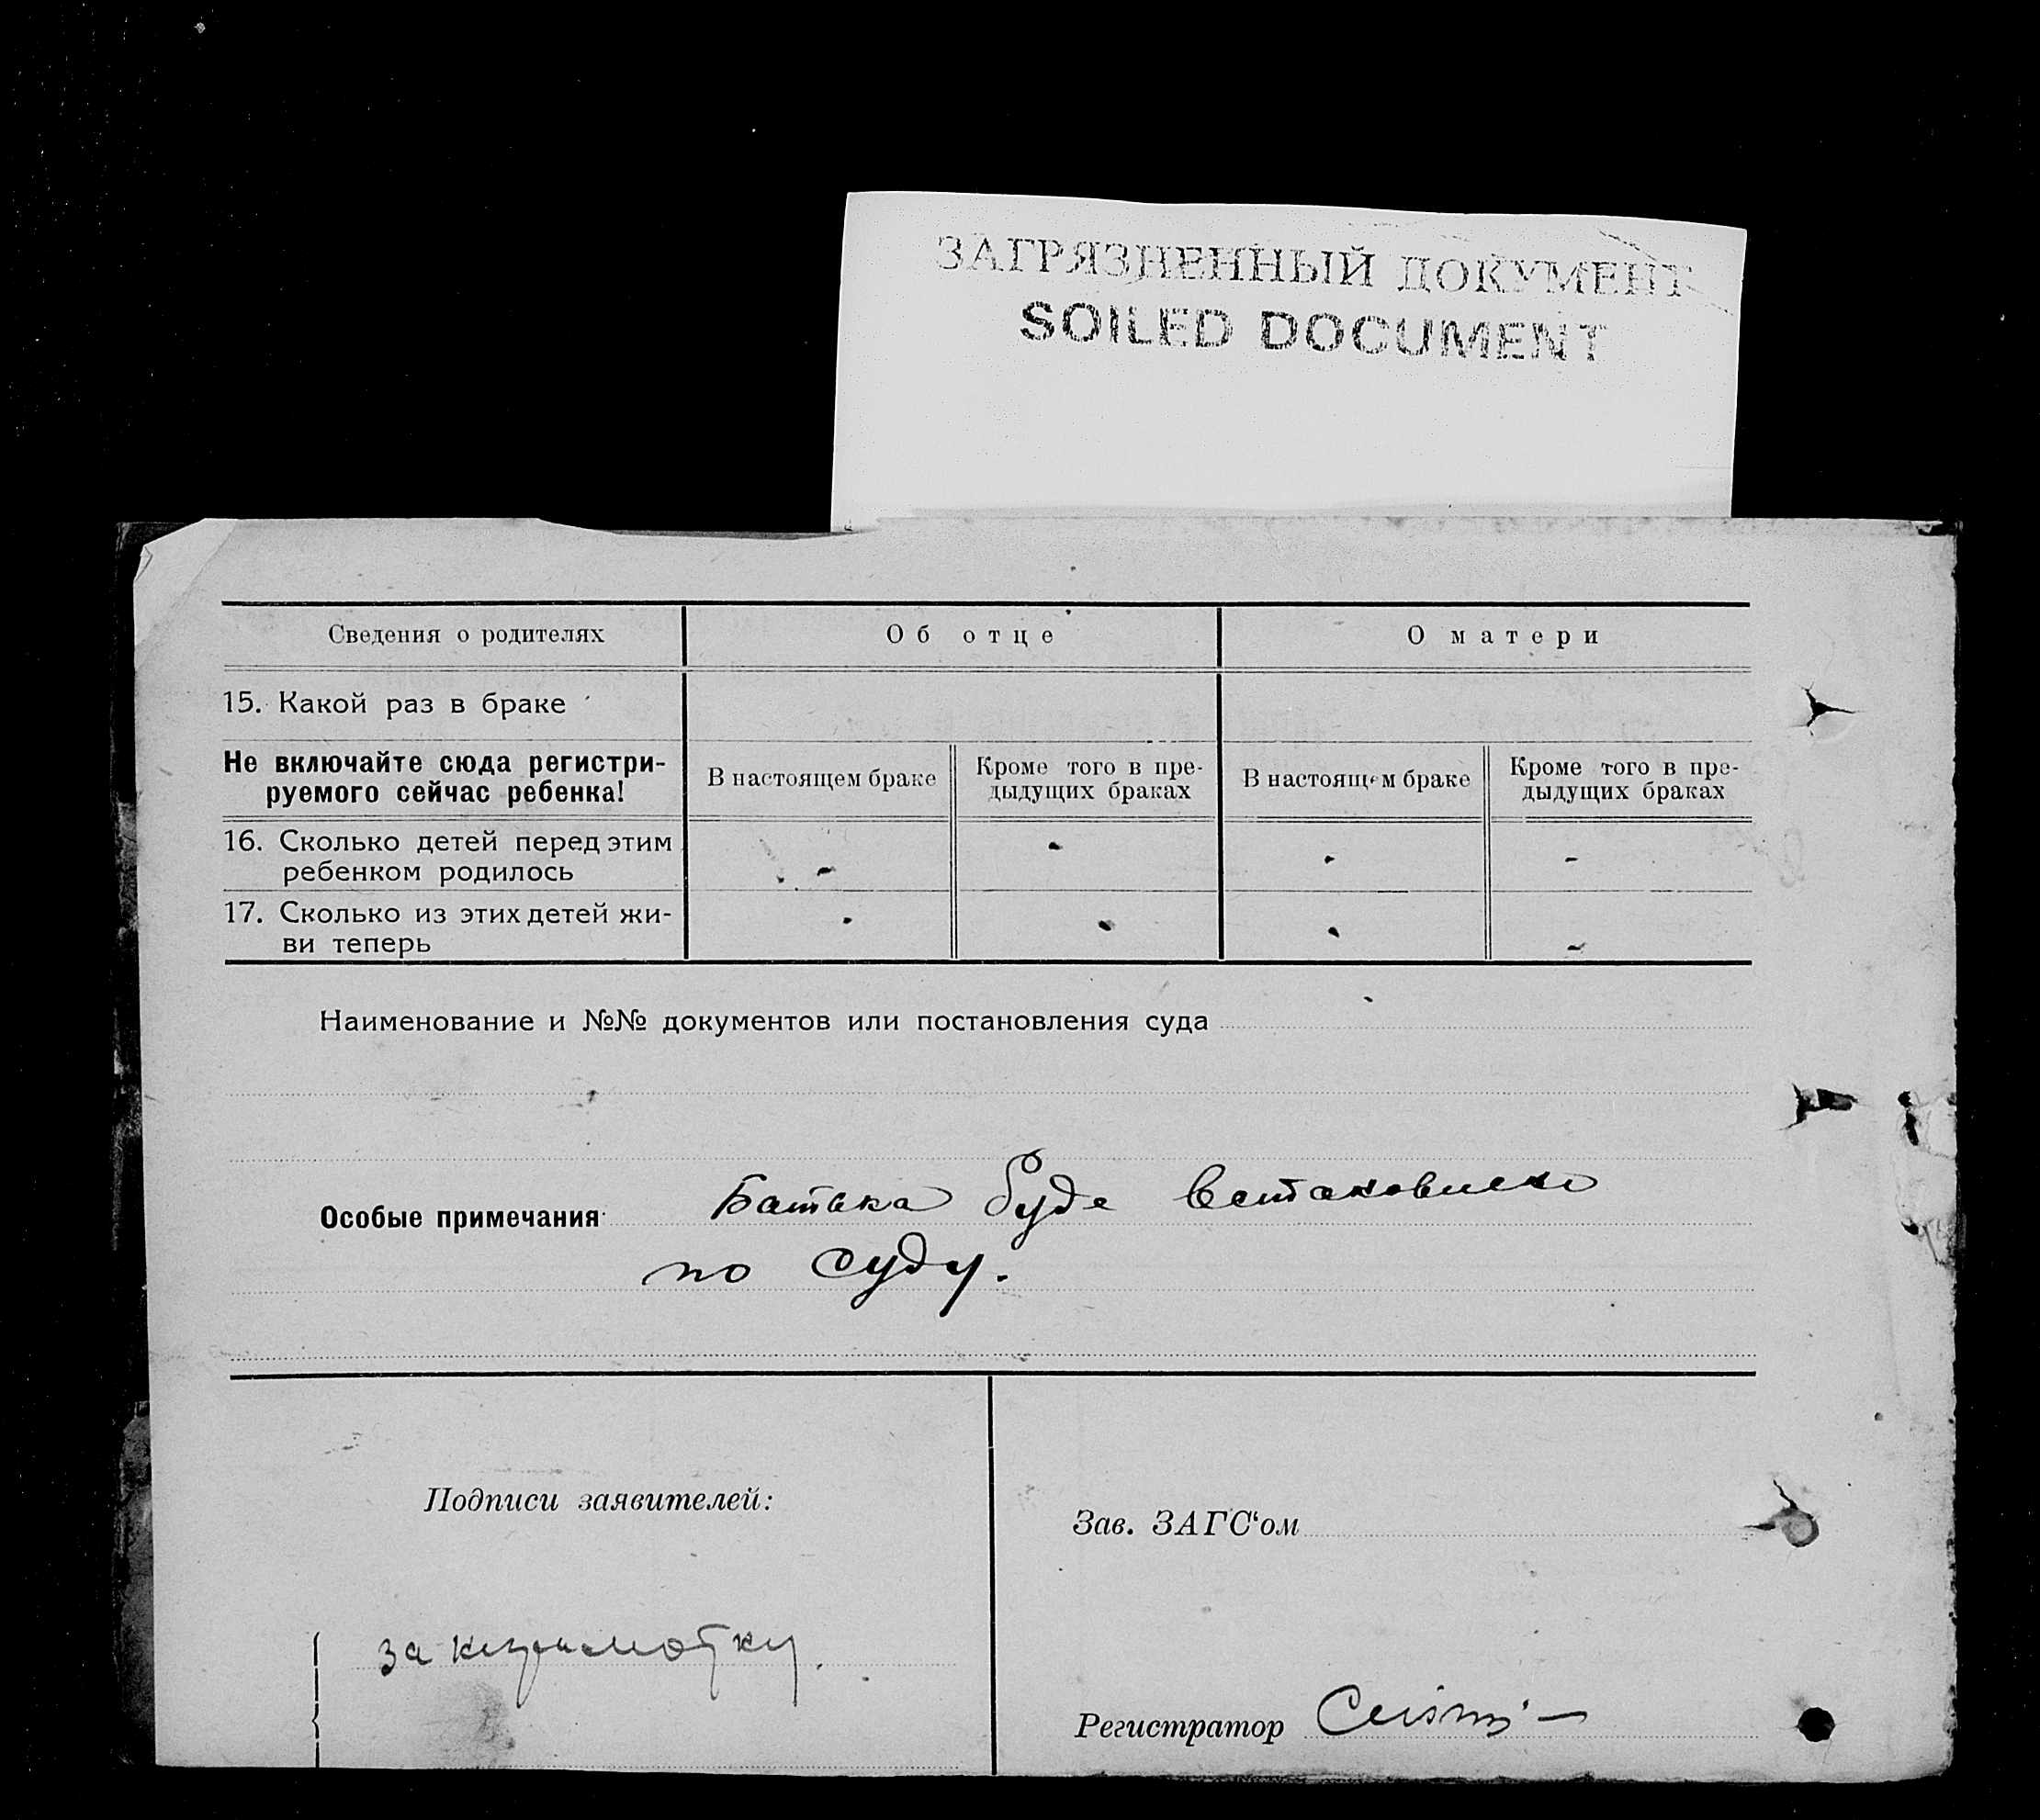 ЗАГРЯЗНЕННЫЙ ДОКУМЕНТ
SOILED DOCUMENT
Сведения о родителях Об отце О матери
15. Какой раз в браке
Не включайте сюда регистри-
руемого сейчас ребенка!
В настоящем браке
Кроме того в пре-
дыдущих браках
В настоящем браке
Кроме того в пре-
дыдущих браках
16. Сколько детей перед этим
ребенком родилось - - - -
17. Сколько из этих детей жи-
ви теперь - - - -
Наименование и №№ документов или постановления суда
Особые примечания Батька буде
по суду.
Подписи заявителей:
Зав. ЗАГС‘ом
за
Регистратор